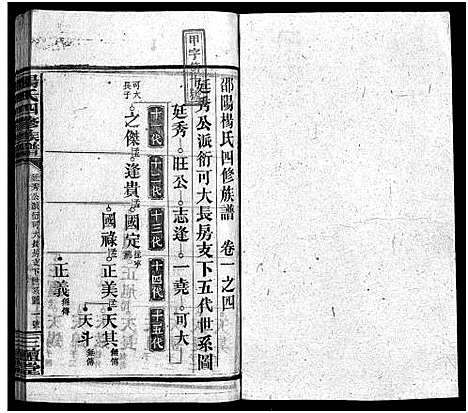 邵陽楊氏四修族譜 卷一之四
廷秀公派衍可大長房支下五代世系圖
廷秀 旺公 志逢 一堯 可大
十一代 十二代 十三代 十四代 十五代
可大長子
之傑 逢貴 國定
國祿 正美 天其 無傳
天斗 無傳
正義 無傳
氏四修族譜
廷秀公派衍可大長房支下五代世系圖 一號
三鱣堂
甲字